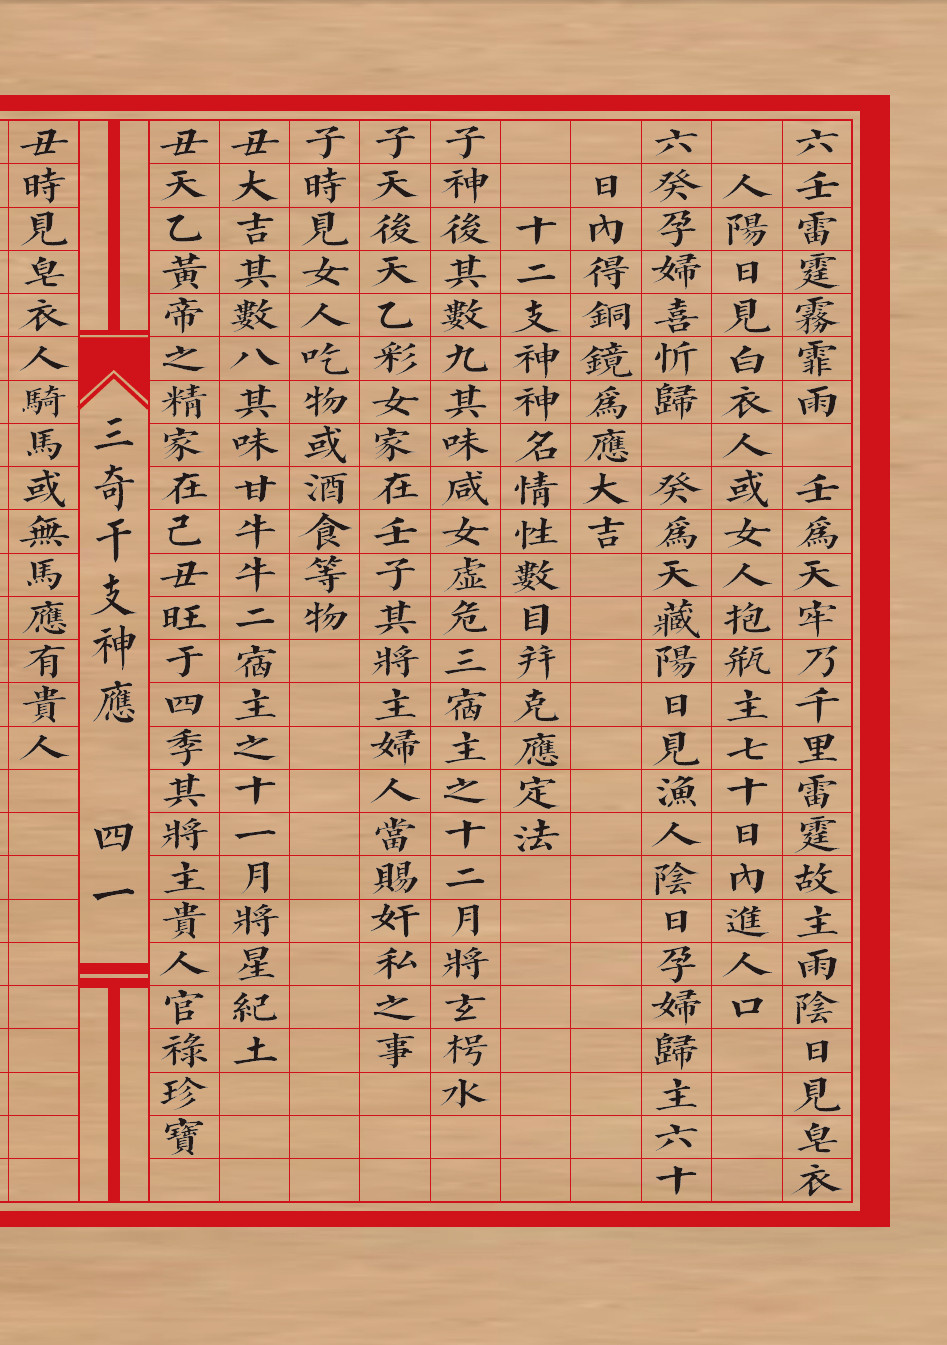 六壬雷霆霧霏雨　壬爲天牢乃千里雷霆故主雨陰日見皂衣
人陽日見白衣人或女人抱瓶主七十日內進人口
六癸孕婦喜忻歸　癸爲天藏陽日見漁人陰日孕婦歸主六十
日內得銅鏡爲應大吉
十二支神神名情性數目拜克應定法
子神後其數九其味咸女虛危三宿主之十二月將玄枵水
子天後天乙彩女家在壬子其將主婦人當賜奸私之事
子時見女人吃物或酒食等物
丑大吉其數八其味甘牛牛二宿主之十一月將星紀土
丑天乙黃帝之精家在己丑旺于四季其將主貴人官祿珍寶
三奇干支神應　四一
丑時見皂衣人騎馬或無馬應有貴人